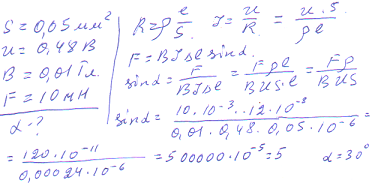 S = 0,05 мм²
u = 0,48 В
B = 0,01 Тл.
F = 10 мН
α - ?
R = ρ e/S   I = u/R = u·S/ρe
F = BIΔe sinα.
sinα = F/BIΔe = Fρe/BUS·e = Fρ/BUS
sinα = 10·10⁻³·12·10⁻⁸/0,01·0,48·0,05·10⁻⁶ =
= 120·10⁻¹¹/0,00024·10⁻⁶ = 500000·10⁻⁵ = 5   α = 30°